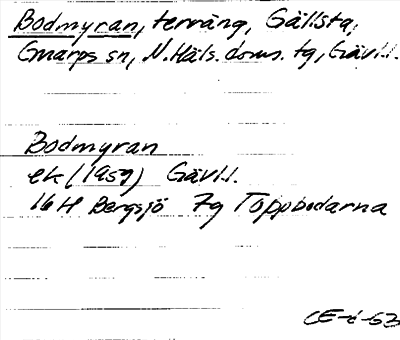 Bodmyran, terräng, Gällsta,
Gnarps sn, N. Häls. doms. tg, Gävl.l.
Bodmyran
ek (1959) Gävl.l.
16H Bergsjö 7g Toppbodarna